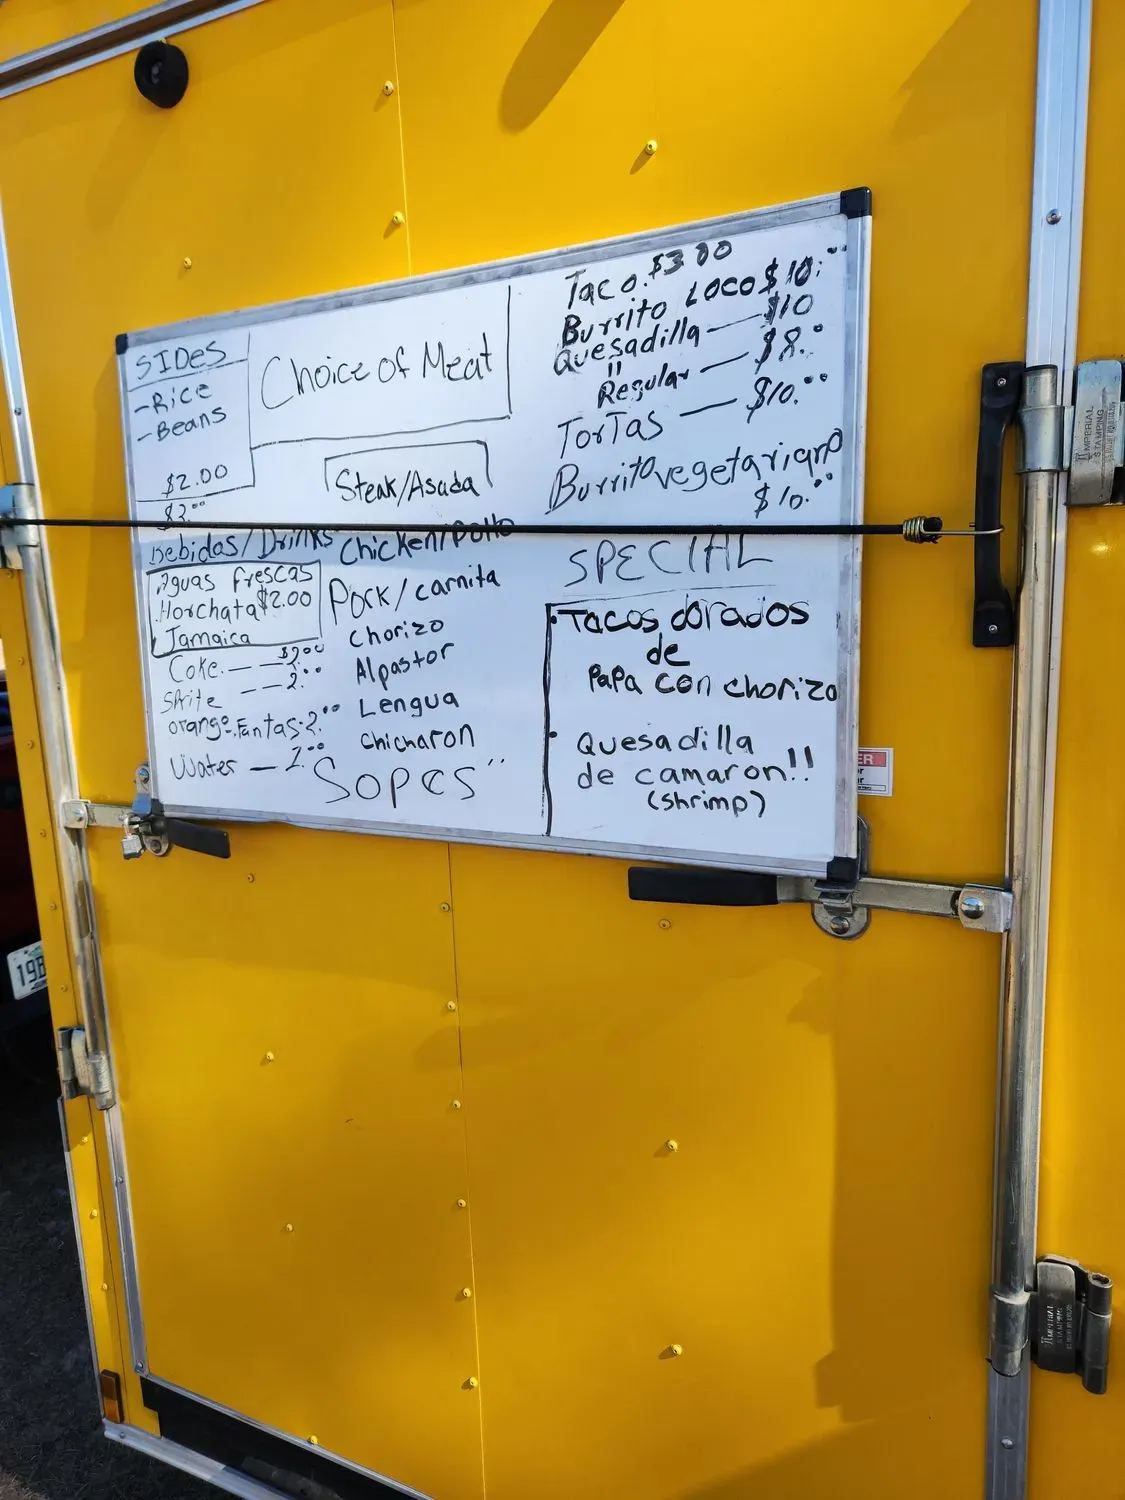 SIDES
-Rice
-Beans
$2.00
$2.00
Bebidas/Drinks
.Aguas frescas
.Horchata $2.00
Jamaica
Coke. — — $2.00
Sprite — — 2.00
orange.Fantas.2.00
Water — 1.00
Choice of Meat
Steak/Asada
Chicken/Pollo
Pork/carnita
Chorizo
Alpastor
Lengua
Chicharon
Sopes"
Taco. $3.00
Burrito Loco $10.00
Quesadilla — $10
" Regular — $8.0
TorTas — $10.00
Burrito vegetariano
$10.00
SPECIAL
• Tacos dorados
de
Papa con chorizo
• Quesadilla
de camaron!!
(shrimp)
IMPERIAL
STAMPING
IMPERIAL
STAMPING
19B